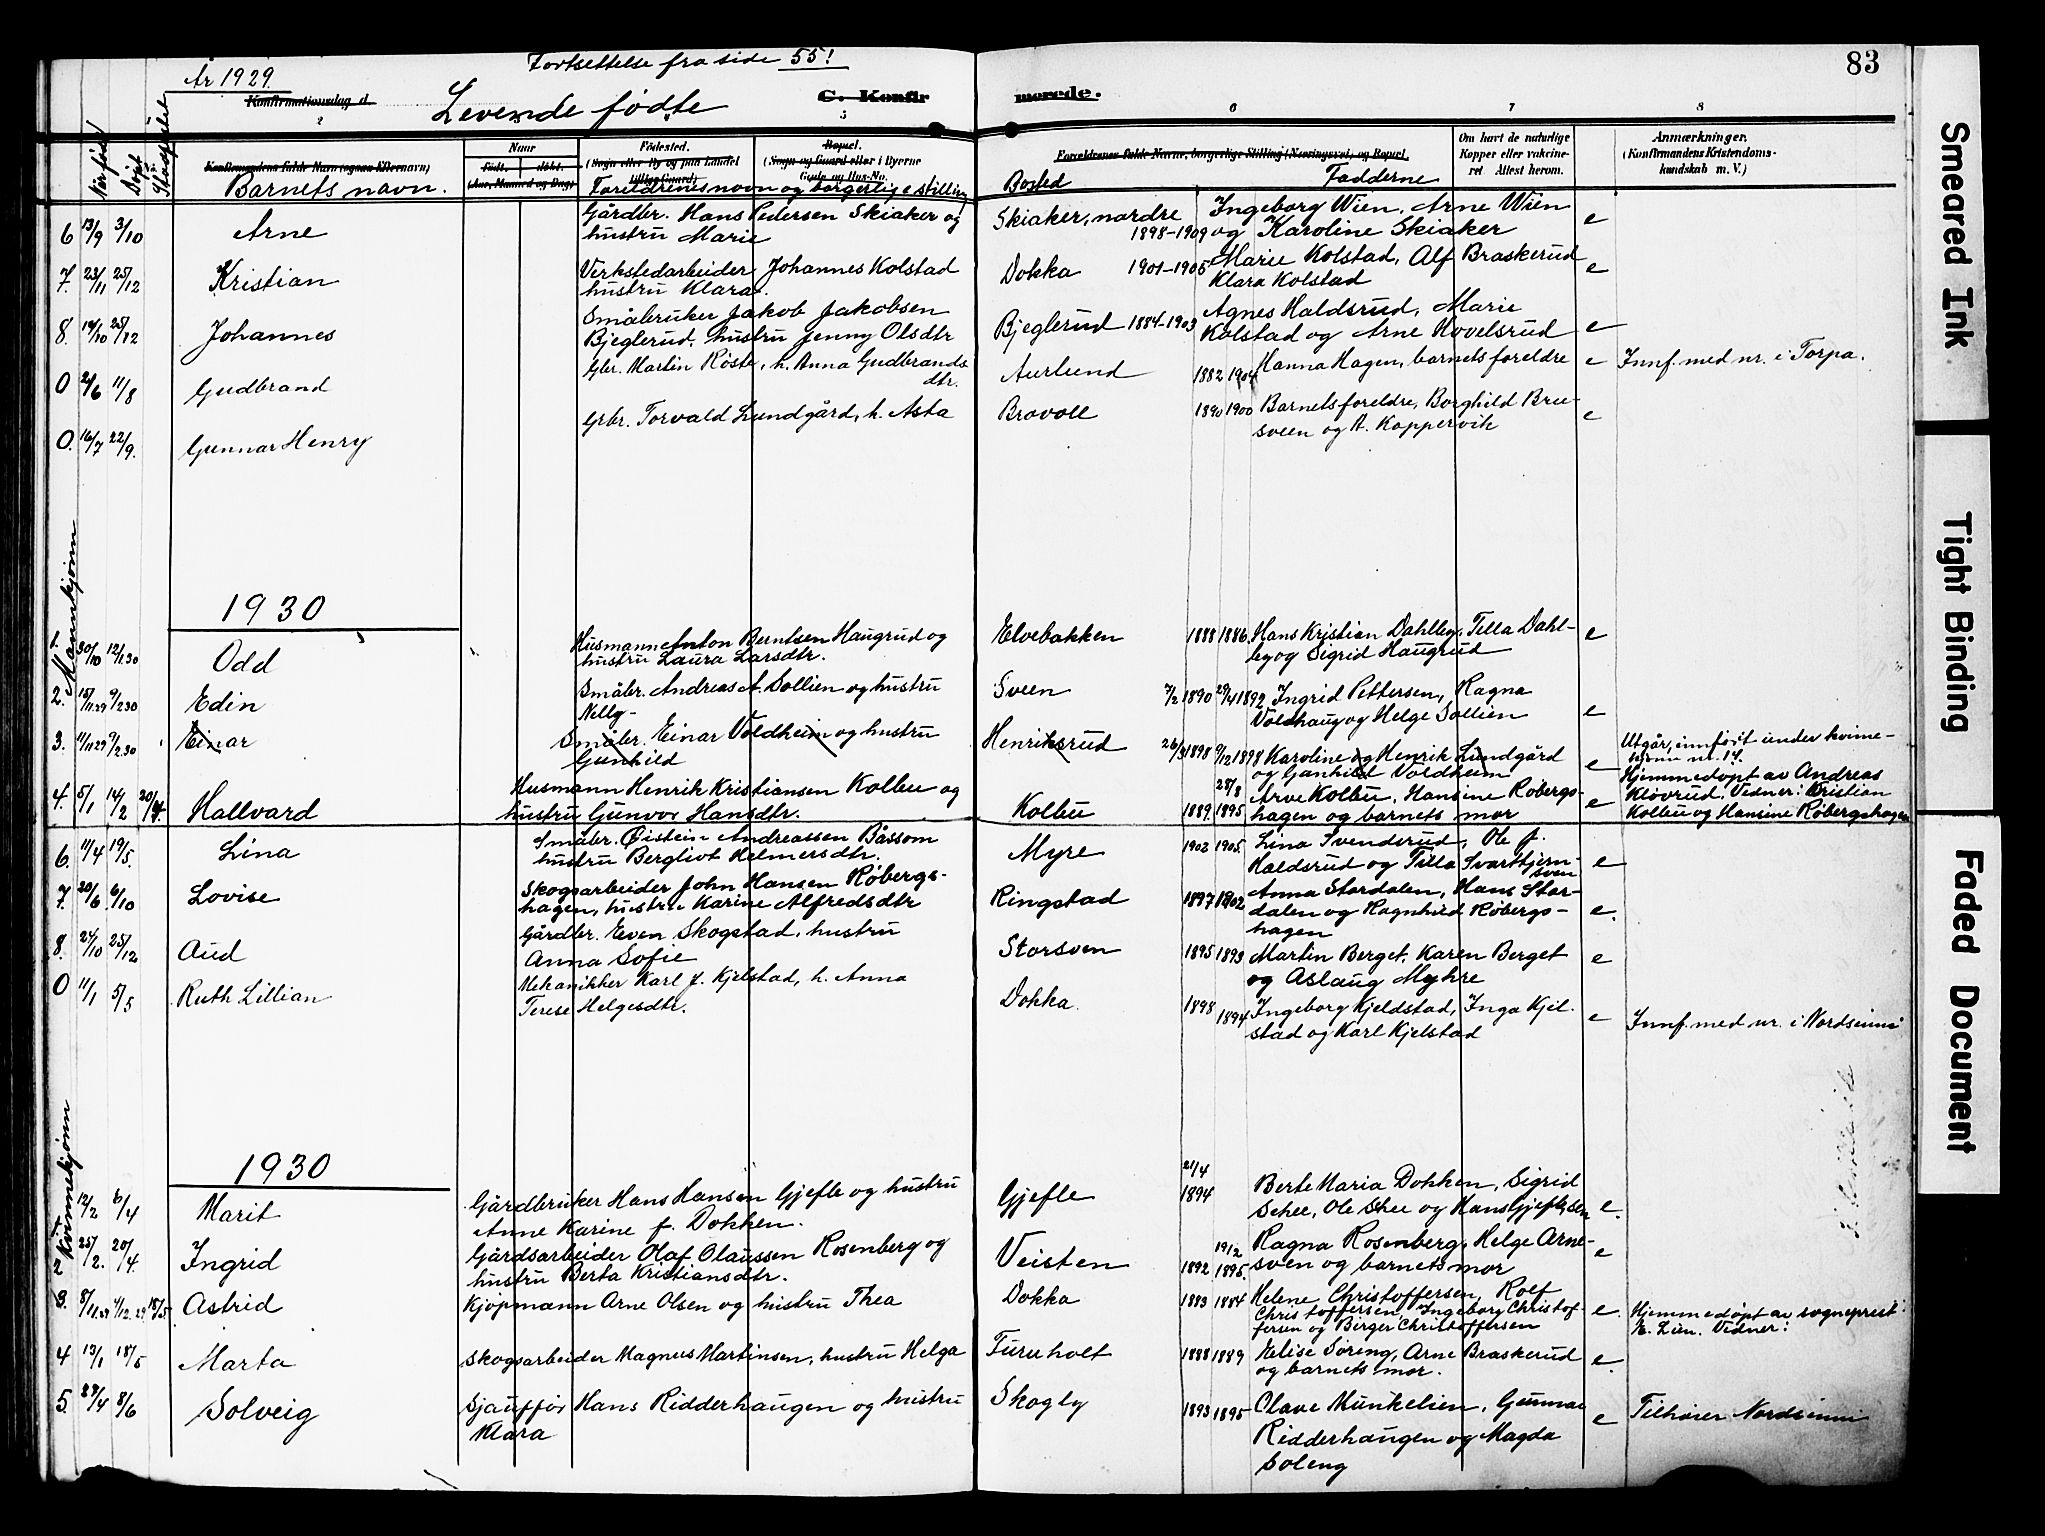 Fortsettelse fra side 55!
83
År 1929.
Konfirmationsdag d.
Levende fødte
C. Konfirmerede.
2
3
6
7
8
Når født
Døpt
Stadfestet
Konfirmandens fulde Navn (ogsaa Efternavn)
Barnets navn.
Naar
født.
døbt.
(Aar, Maaned og Dag)
Fødested.
(Sogn eller By og paa Landet tillige Gaard)
Bopæl.
(Sogn og Gaard eller i Byerne Gade og Hus-No.
Foreldrenes navn og borgerlige stilling
Forældrenes fulde Navne, borgerlige Stilling (Næringsvei) og Bopæl.
Bosted
Fadderne
Om havt de naturlige
Kopper eller vaccine-
ret Attest herom.
Anmærkninger.
(Konfirmandens Kristendoms-
kundskab m. V.)
6 13/9 3/10 Arne Gårdbr. Hans Pedersen Skiaker og hustru Marie Skiaker, nordre 1898-1909 Ingeborg Wien, Arne Wien og Karoline Skiaker e
7. 23/11 25/12 Kristian Verkstedarbeider Johannes Kolstad hustru Klara. Dokka 1901-1905 Marie Kolstad, Alf Braskerud Klara Kolstad e
8. 19/10 25/12 Johannes Småbruker Jakob Jakobsen Bjeglerud, hustru Jenny Olsdtr Bjeglerud 1884-1903 Agnes Haldsrud, Marie Kolstad og Arne Hovelsrud e
0 2/6 11/8 Gudbrand Gbr. Martin Røste, h. Anna Gudbrandsdtr. Aurlund 1882 1904 Hanna Hagen, barnets foreldre e Innf. med nr. i Torpa.
0. 16/7 22/9. Gunnar Henry Grbr. Torvald Lundgård, h. Asta Bravoll 1890 1900 Barnets foreldre, Borghild Bru-
sveen og A. Koppervik e
Mannkjønn
1930
1 30/10 12/1.30 Odd Husmann Anton Berntsen Haugrud og hustru Laura Larsdtr. Elvebakken 1888 1886 Hans Kristian Dahlby, Tilla Dahl-
by og Sigrid Haugrud e
2. 15/11.29 9/2.30 Edin Småbr. Andreas A. Sollien og hustru Nelly- Sveen 7/2 1890 29/4 1892 Ingrid Pettersen, Ragna Voldhaug og Helge Sollien e
3. 11/11.29 9/2.30 Einar Småbr. Einar Voldheim og hustru Gunhild Henriksrud 26/3 1898 9/12 1898 Karoline og Henrik Lundgård og Gunhild Voldheim e Utgår, innført under kvinne-
kjønn nr. 14.
4. 5/1 14/2 20/4. Hallvard Husmann Henrik Kristiansen Kolbu og hustru Gunvor Hansdtr. Kolbu 1889 28/8 1895 Arve Kolbu, Hansine Røbergs-
hagen og barnets mor e Hjemmedøpt av Andreas
Kløvrud. Vidner: Kristian
Kolbu og Hansine Røbergshagen
6. 11/4 19/5. Lina Småbr. Øistein Andreassen Båssom hustru Bergliot Helmersdtr. Myre 1902 1905 Lina Svendsrud, Ole J. Haldsrud og Tilla Svarttjern-
sven e
7. 20/6 6/10 Lovise Skogsarbeider John Hansen Røbergs-
hagen, hustru Karine Alfredsdtr Ringstad 1897 1902 Anna Stordalen, Hans Stor-
dalen og Ragnhild Røbergs-
hagen e.
8. 24/10 25/12 Aud Gårdbr. Even Skogstad, hustru Anna Sofie Storsven 1895 1893 Martin Berget, Karen Berget og Aslaug Myhre e
0 11/1 5/5 Ruth Lillian Mekanikker Karl J. Kjelstad, h. Anna Terese Helgesdtr. Dokka 1898 1894 Ingeborg Kjeldstad, Inga Kjel-
stad og Karl Kjelstad e Innf. med nr. i Nordsinni
Kvinnekjønn
1930
1 12/2 6/4 Marit Gårdbruker Hans Hansen Gjefle og hustru Anne Karine f. Dokken. Gjefle 21/4 1894 Berte Maria Dokken, Sigrid Schee, Ole Shee og Hans Gjeflesen e.
2 25/2. 20/4. Ingrid Gårdsarbeider Olaf Olaussen Rosenberg og hustru Berta Kristiansdtr. Veisten 1892 19/2 1895. Ragna Rosenberg, Helge Arne-
sven og barnets mor e
3. 8/11.29 4/12.29 18/5 Astrid Kjøpmann Arne Olsen og hustru Thea Dokka 1883 1884 Helene Christoffersen, Rolf Christoffersen, Ingeborg Christof-
fersen og Birger Christoffersen e. Hjemmedøpt av sogneprest
K. Lien. Vidner:
4 13/1 18/5 Marta Skogsarbeider Magnus Martinsen, hustru Helga Furuholt 1888 1889 Elise Søring, Arne Braskerud og barnets mor. e.
5. 29/4 8/6 Solveig Sjauffør Hans Ridderhaugen og hustru Klara Skogly 1893 1895 Olave Munkelien, Gunnar Ridderhaugen og Magda Soleng e Tilhører Nordsinni
Smeared Ink
Tight Binding
Faded Document